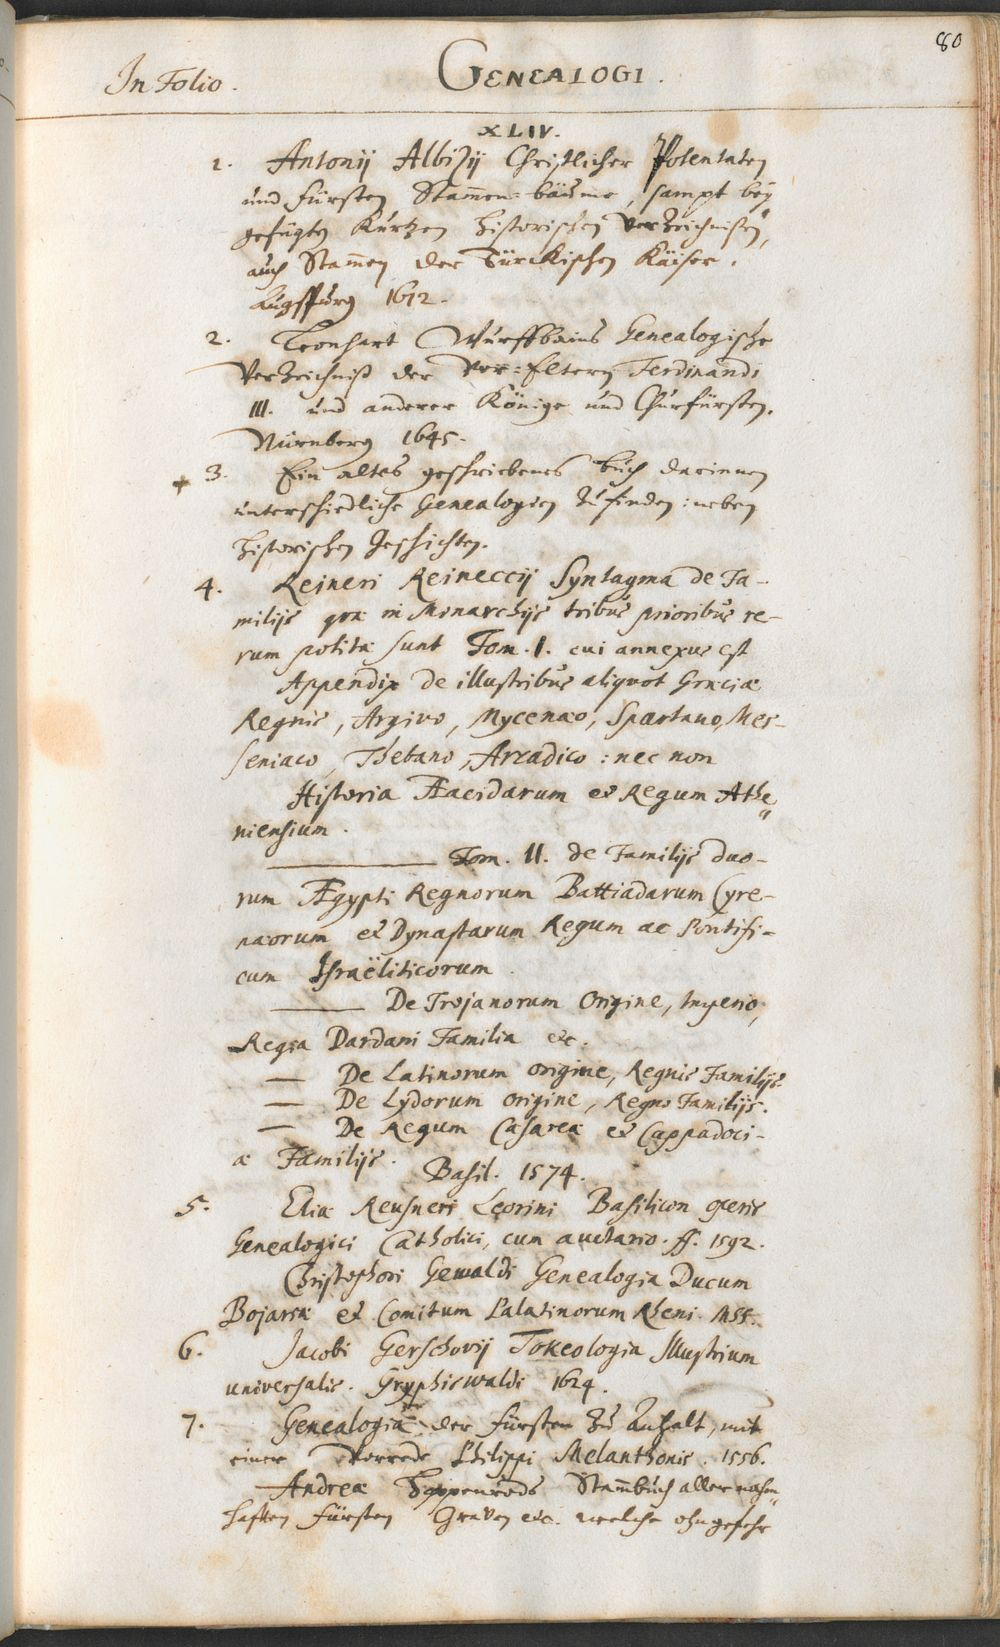 80
In Folio. GENEALOGI.
XLIV.
1. Antonij Albizij Christlicher Potentaten
und Fürsten Stam̄en-bäume, sampt bey
gefügten kurtzen Historischen Verzeichnißen,
auch Stam̄en der Türckischen Käiser.
Augspurg 1612.
2. Leonhart Wurffbains Genealogische
Verzeichniß der Vor-Eltern Ferdinandi
III. und anderer Könige und Churfürsten.
Nürnberg 1645.
+ 3. Ein altes geschriebenes buch darinnen
unterschiedliche Genealogien zufinden: neben
Historischen Geschichten.
4. Reineri Reineccij Syntagma de Fa-
milijs quæ in Monarchijs tribus prioribus re-
rum potitæ sunt Tom. I. cui annexus est
Appendix de illustribus aliquot Græciæ
Regnis, Argivo, Mycenæo, Spartano, Mes-
seniaco, Thebano, Arcadico: nec non
Historia Æacidarum et Regum Athe-
niensium.
Tom. II. de Familijs duo-
rum Ægypti Regnorum Battiadarum Cyre-
næorum et Dynastarum Regum ac Pontifi-
cum Israëliticorum.
De Trojanorum Origine, Imperio,
Regia Dardani Familia etc.
— De Latinorum origine, Regnis Familijs.
— De Lydorum origine, Regno Familijs.
— De Regum Cæsareæ et Cappadoci-
æ Familijs. Basil. 1574.
5. Eliæ Reusneri Leorini Basilicon operis
Genealogici Catholici, cum auctario. ff. 1592.
Christophori Gewaldi Genealogia Ducum
Bojariæ et Comitum Palatinorum Rheni. Mss.
6. Jacobi Gerschovij Tokeologia Illustrium
universalis. Gryphiswaldi 1624.
7. Genealogia der Fürsten zu Anhalt, mit
einer Vorrede Philippi Melanthonis. 1556.
Andreæ Hoppenrods Stam̄buch aller nahm-
hafften Fürsten Graven etc. welche ohngefehr